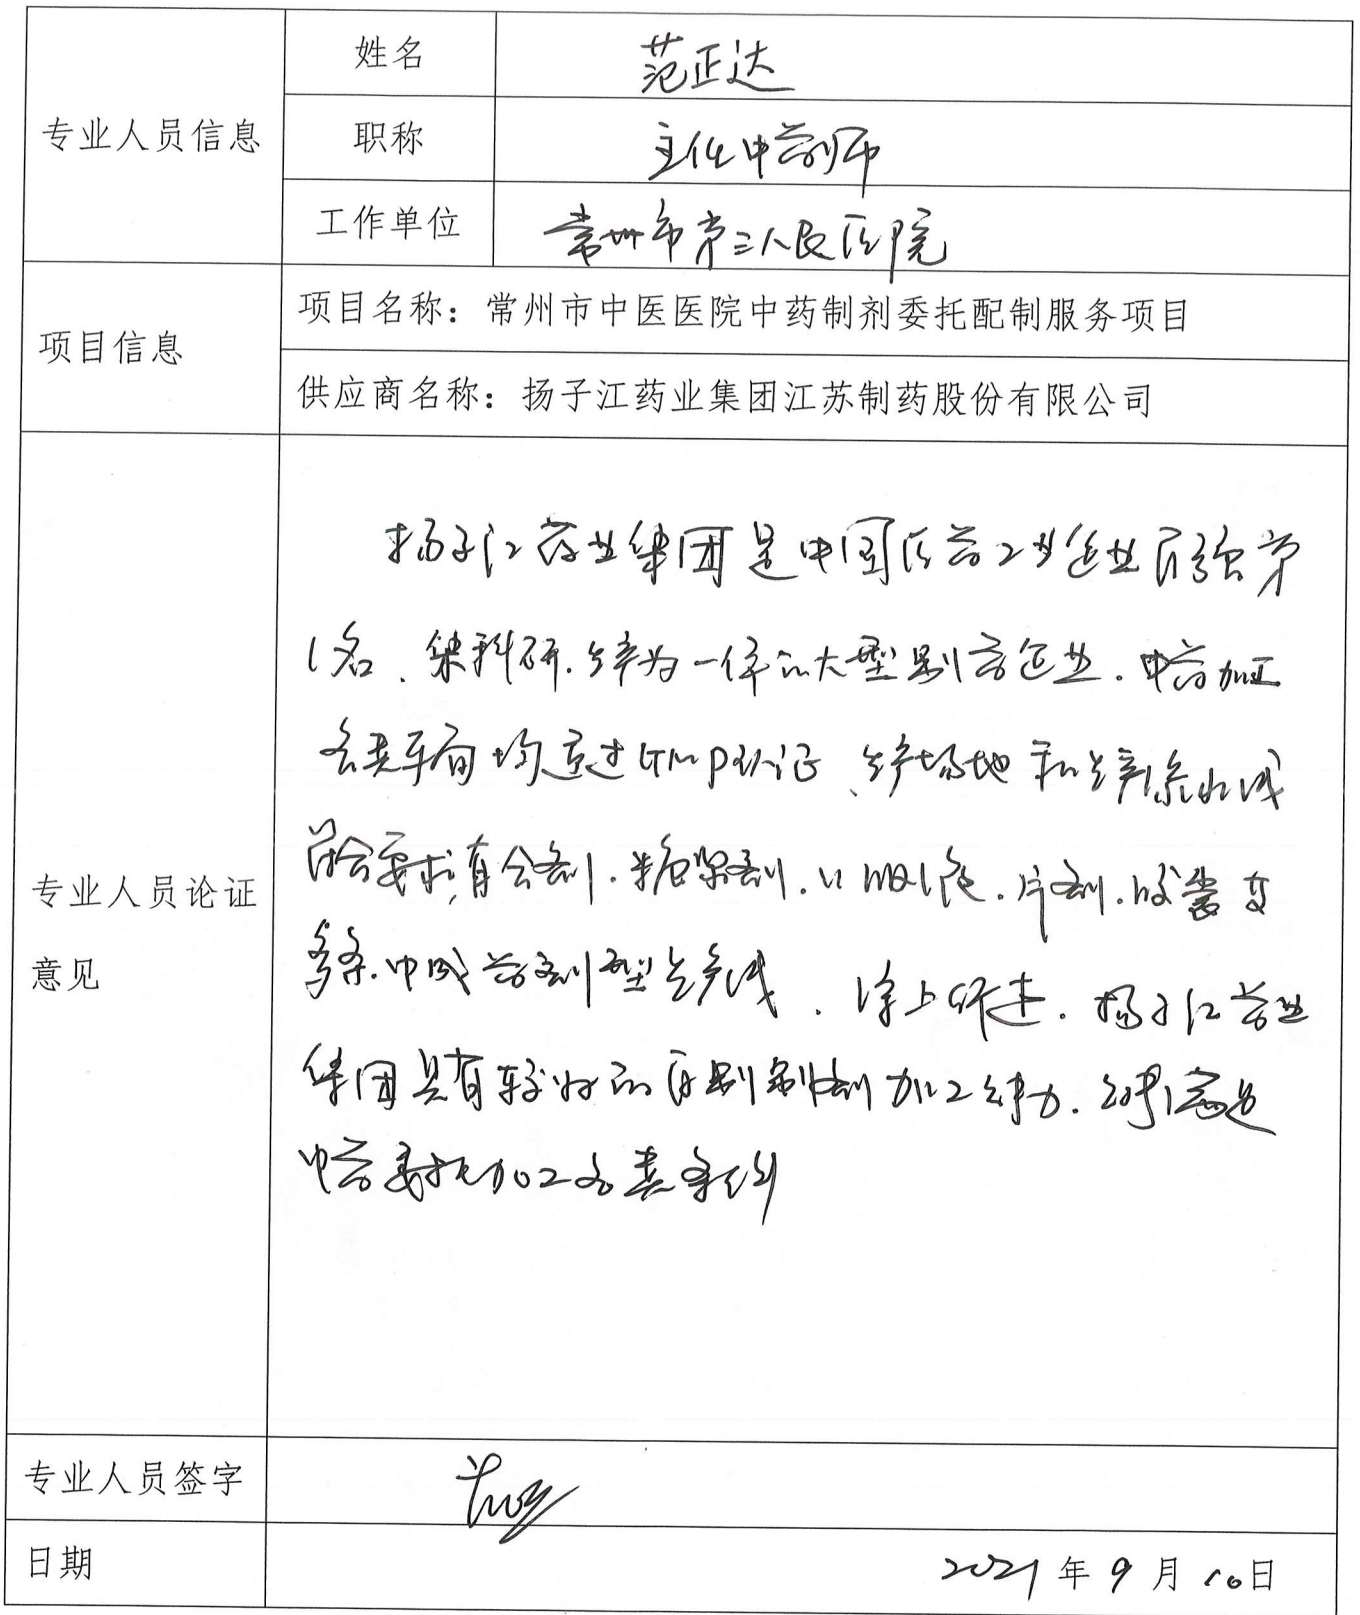 专业人员信息
姓名
范正达
职称
主任中药师
工作单位
常州市第三人民医院
项目信息
项目名称：常州市中医医院中药制剂委托配制服务项目
供应商名称：扬子江药业集团江苏制药股份有限公司
专业人员论证
意见
扬子江药业集团是中国医药工业企业百强第
1名、集科研、生产为一体的大型制药企业.中药加工
各类车间均通过GMP认证、生产场地和生产流水线
符合要求,有合剂.糖浆剂.口服液.片剂.胶囊等
多条.中成药剂型生产线.综上所述.扬子江药业
集团具有较好的制剂加工能力.能满足
中药委托加工各类条件
专业人员签字
日期
2021年9月10日